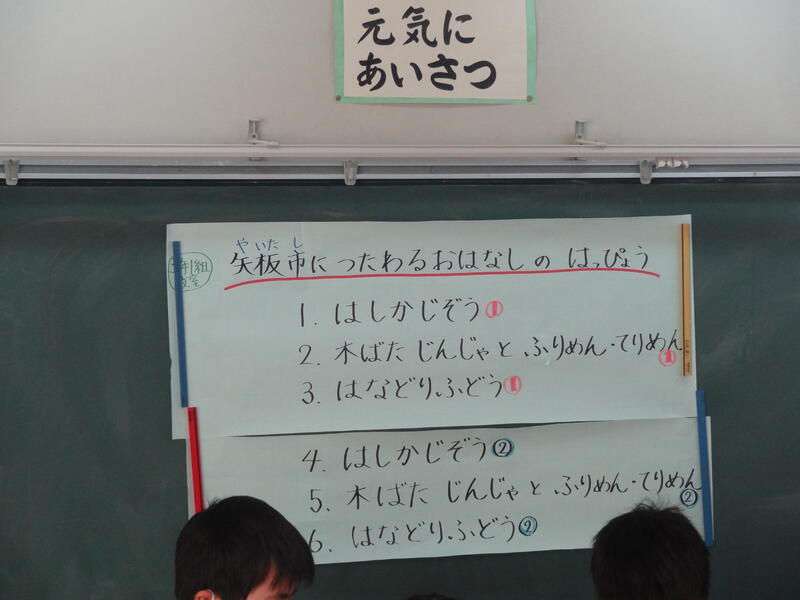 元気に
あいさつ
3年1組
教室
やいたし
矢板市につたわるおはなしの はっぴょう
1. はしかじぞう①
2. 木ばた じんじゃと ふりめん・てりめん①
3. はなどりふどう①
4. はしかじぞう②
5. 木ばた じんじゃと ふりめん・てりめん②
6. はなどりふどう②